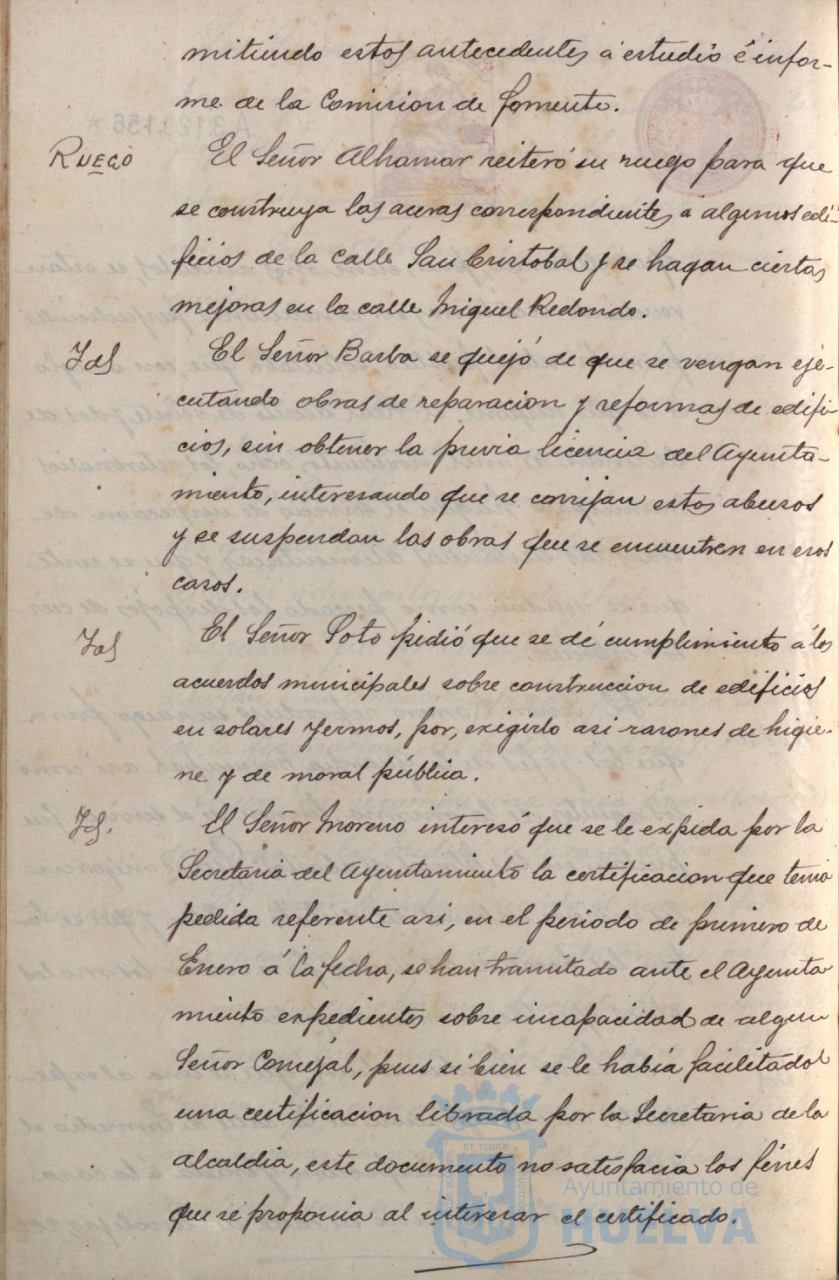 mitiendo estos antecedentes á estudio é infor-
me de la Comision de fomento.
RUEGO
El Señor Alhamar reiteró su ruego para que
se construya las aceras correspondientes a algunos edi-
ficios de la calle San Cristobal y se hagan ciertas
mejoras en la calle Miguel Redondo.
Id
El Señor Barba se quejó de que se vengan eje-
cutando obras de reparacion y reformas de edifi
cios, sin obtener la previa licencia del Ayunta-
miento, interesando que se corrijan estos abusos
y se suspendan las obras que se encuentren en esos
casos.
Id
El Señor Soto pidió que se dé cumplimiento á los
acuerdos municipales sobre construccion de edificios
en solares yermos, por, exigirlo asi rasones de higie-
ne y de moral pública.
Id.
El Señor Moreno interesó que se le expida por la
Secretaria del Ayuntamiento la certificacion que tenia
pedida referente asi, en el periodo de primero de
Enero á la fecha, se han tramitado ante el Ayunta
miento expedientes sobre incapacidad de algun
Señor Concejal, pues si bien se le había facilitado
una certificacion librada por la Secretaria de la
alcaldia, este documento no satisfacia los fines
que se proponia al interesar el certificado.
ET TERRÆ
Ayuntamiento de
HUELVA